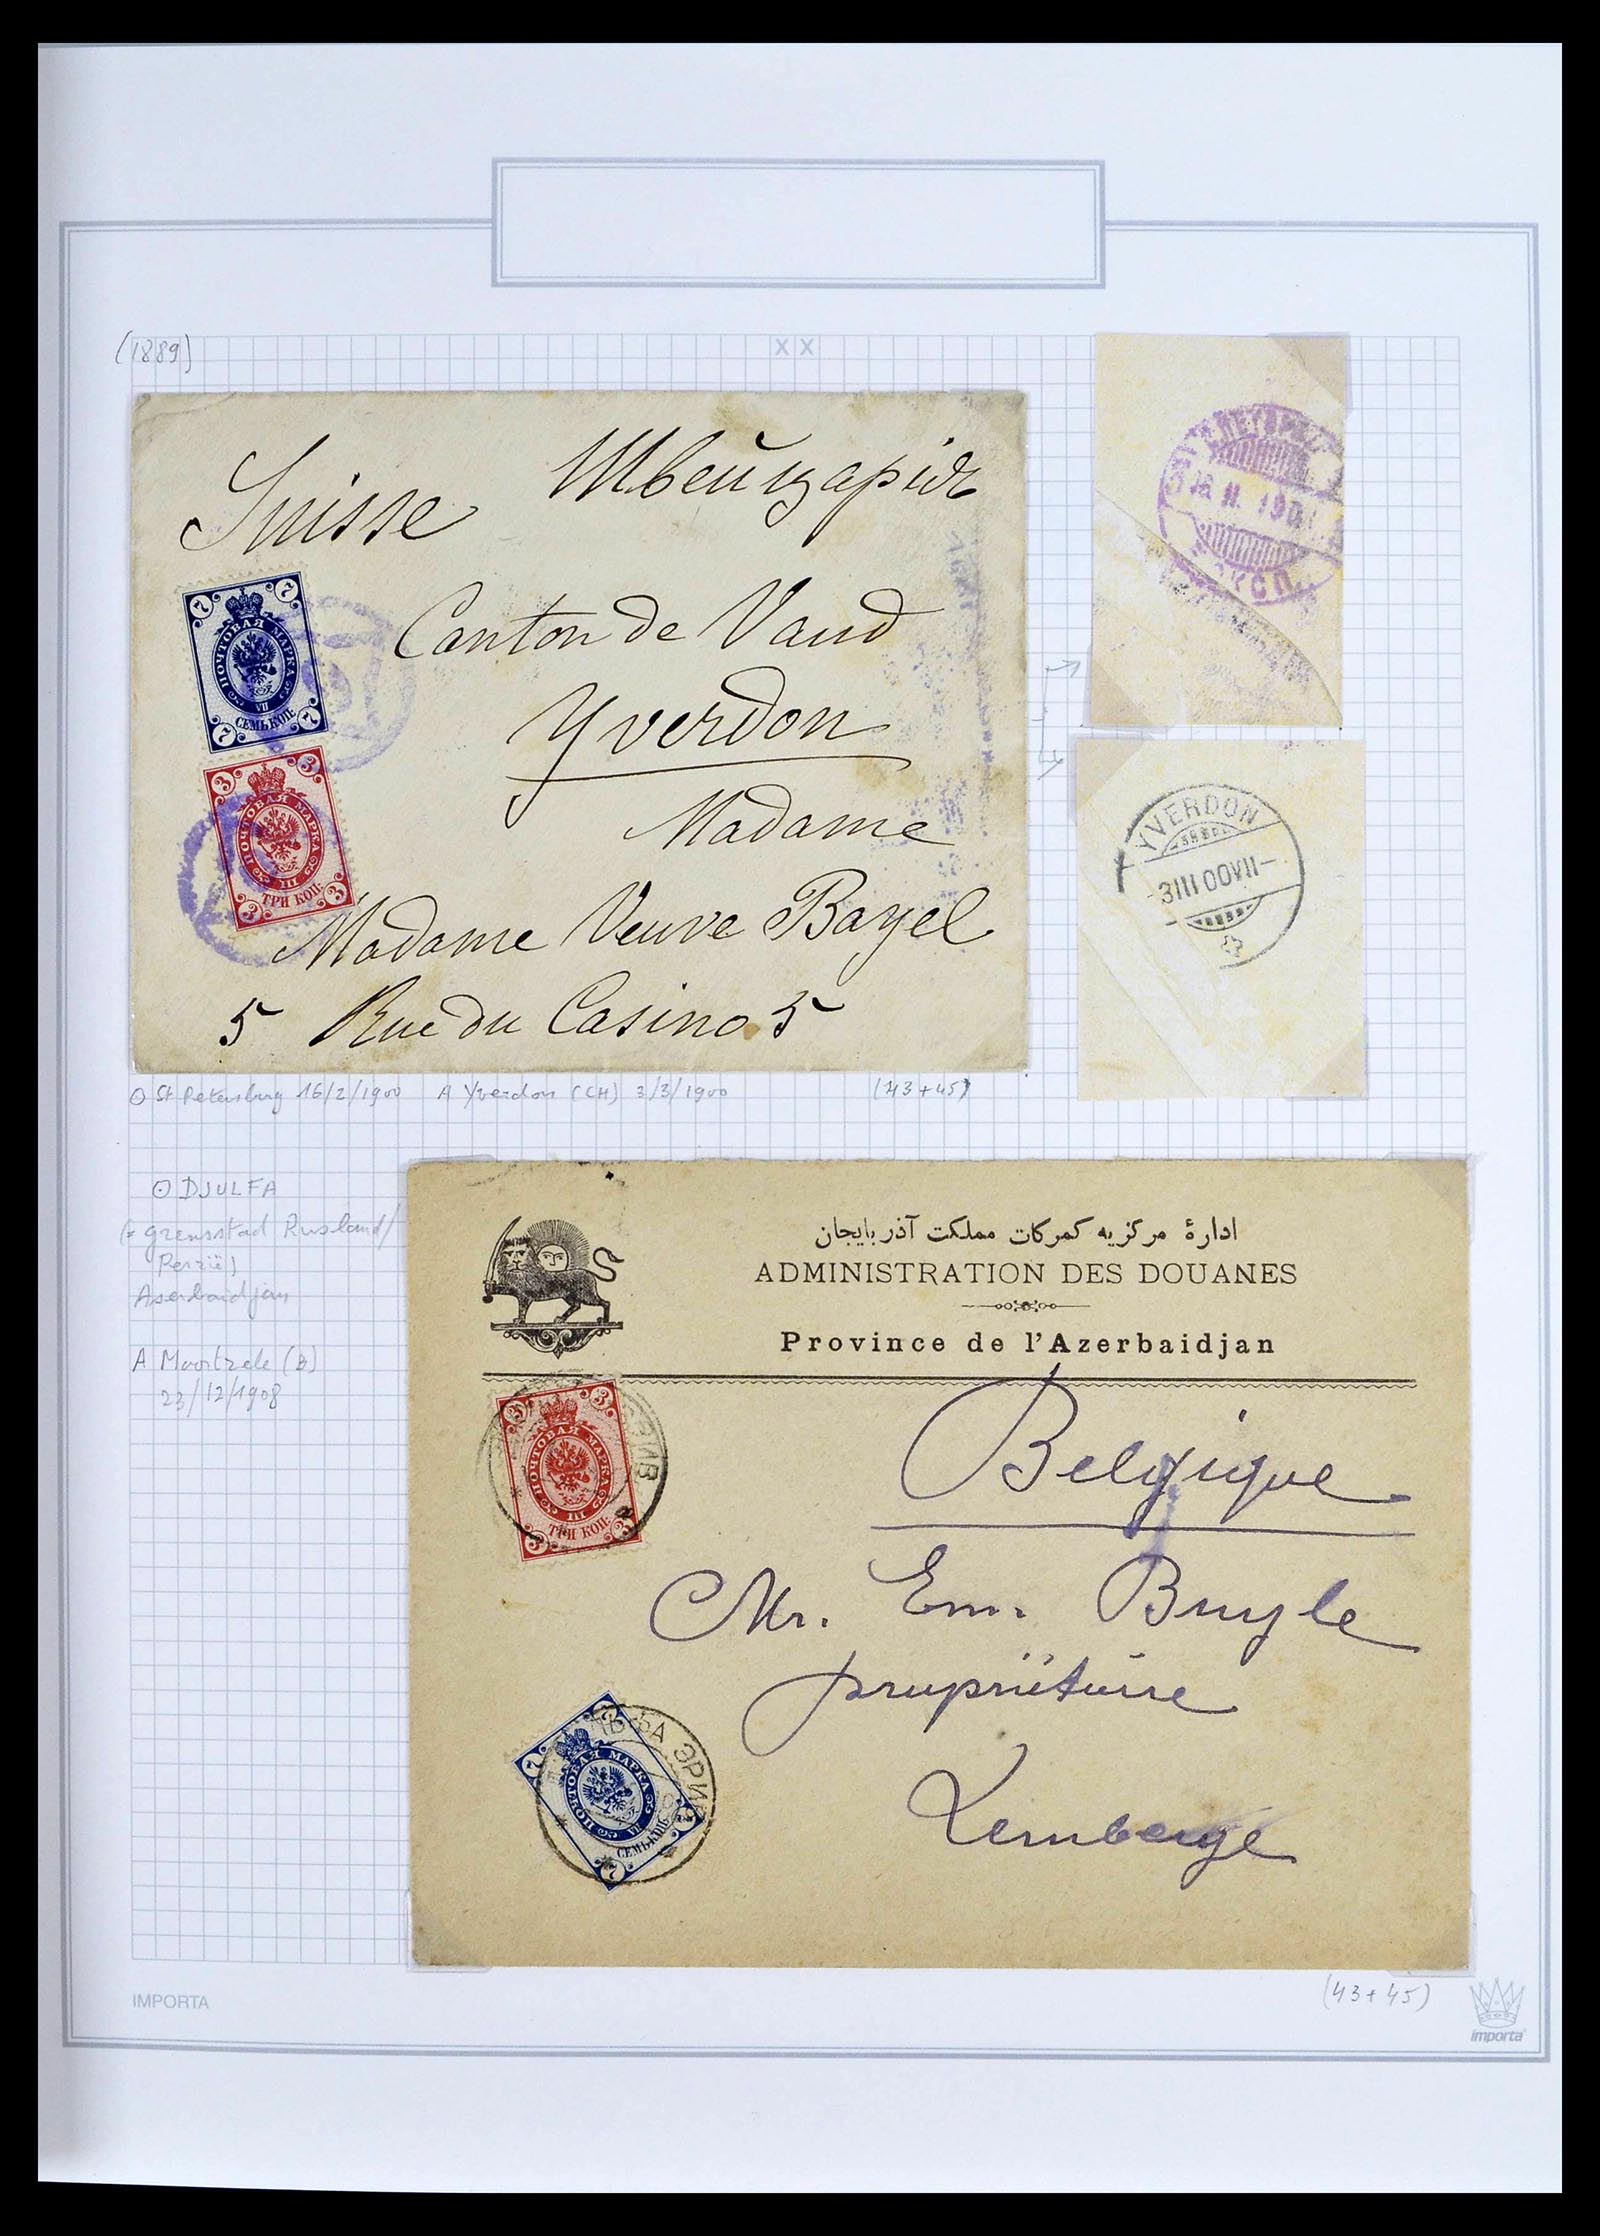 (1889)
XX
Suisse Швейцарія
Canton de Vaud
Yverdon
Madame
Madame Veuve Bayel
5 Rue du Casino 5
7 7
ПОЧТОВАЯ МАРКА
VII
СЕМЬ КОП.
7 7
3 3
ПОЧТОВАЯ МАРКА
III
ТРИ КОП.
3 3
YVERDON
3 III 00 VII
⊙ St Petersburg 16/2/1900 A Yverdon (CH) 3/3/1900 (43+45)
⊙ DJULFA
(= grensstad Rusland/
Perzië)
Aserbaidjan
A Moortzele (B)
23/12/1908
ادارهٔ مرکزیه کمرکات مملکت آذربایجان
ADMINISTRATION DES DOUANES
Province de l'Azerbaidjan
3 3
ПОЧТОВАЯ МАРКА
III
ТРИ КОП.
3 3
Belgique
Mr. Em. Buyle
propriétaire
Lemberge
7 7
ПОЧТОВАЯ МАРКА
VII
СЕМЬ КОП.
7
ЭРИВ
(43+45)
IMPORTA
importa